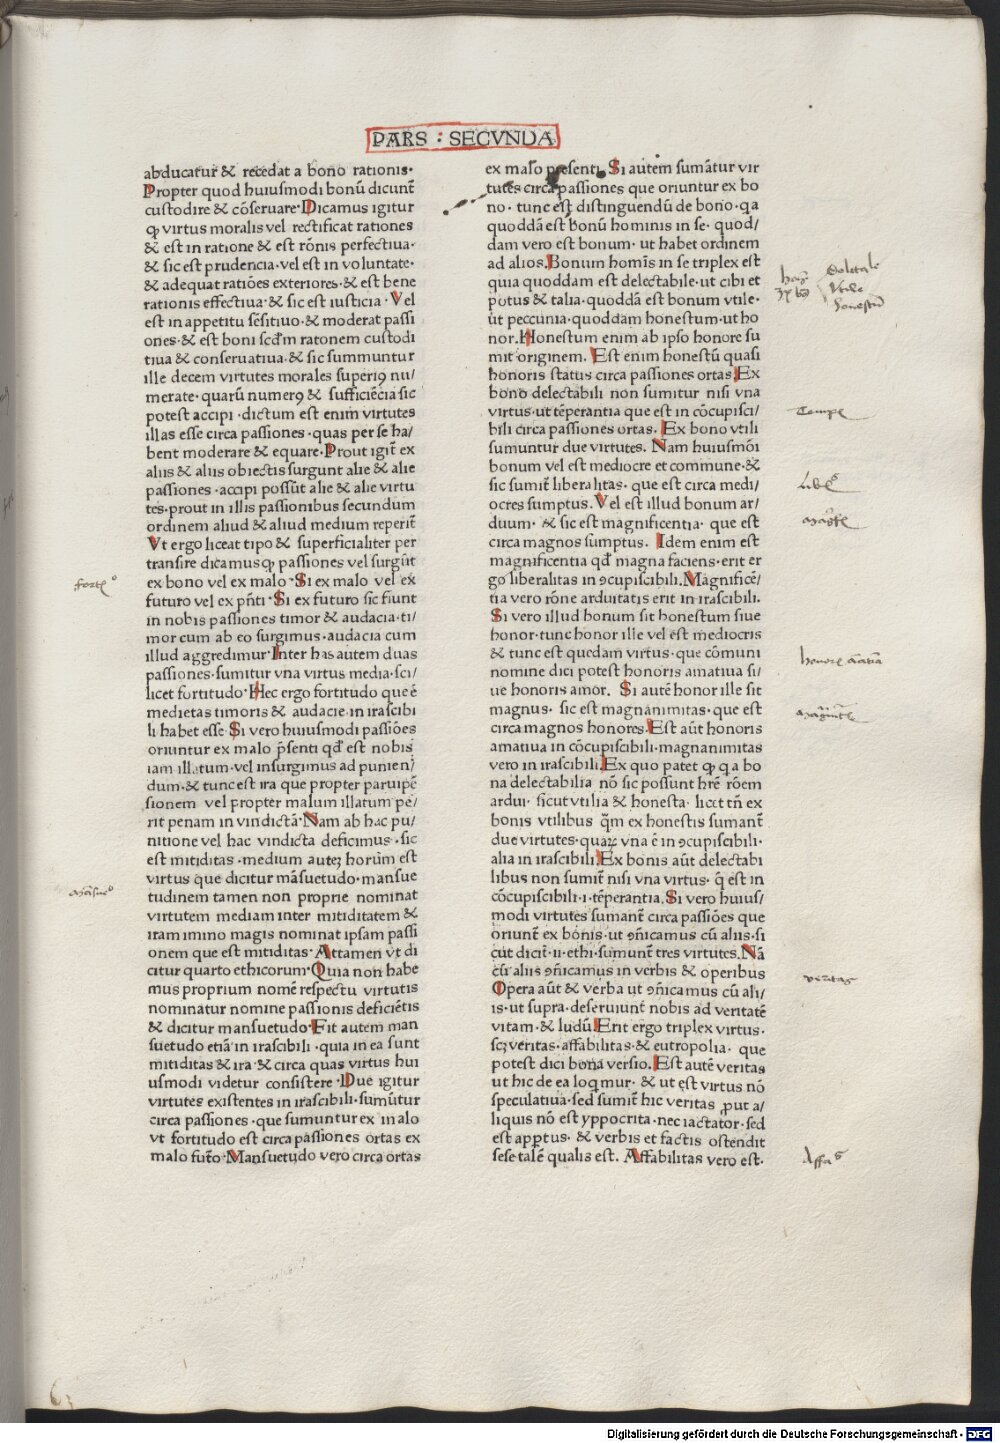 PARS : SECVNDA
abducatur & recedat a bono rationis·
Propter quod huiusmodi bonū dicunt̄
custodire & cōseruare·Dicamus igitur
ꝙ virtus moralis vel rectificat rationes
& est in ratione & est rōnis perfectiua·
& sic est prudencia·vel est in voluntate·
& adequat ratiōes exteriores·& est bene
rationis effectiua·& sic est iusticia·Vel
est in appetitu sēsitiuo·& moderat passi
ones·& est boni scd̄m ratonem custodi
tiua & conseruatiua·& sic summuntur
ille decem virtutes morales superiꝰ nu/
merate·quarū numerꝰ & sufficiēcia sic
potest accipi·dictum est enim virtutes
illas esse circa passiones·quas per se ha/
bent moderare & equare·Prout igit̄ ex
aliis & aliis obiectis surgunt alie & alie
passiones·accipi possūt alie & alie virtu
tes·prout in illis passionibus secundum
ordinem aliud & aliud medium reperit̄
Vt ergo liceat tipo & superficialiter per
transire dicamus ꝙ passiones vel surgūt
ex bono vel ex malo·Si ex malo vel ex
futuro vel ex pn̄ti·Si ex futuro sic fiunt
in nobis passiones timor & audacia·ti/
mor cum ab eo surgimus·audacia cum
illud aggredimur·Inter has autem duas
passiones·sumitur vna virtus media·sci/
licet fortitudo·Hec ergo fortitudo que ē
medietas timoris & audacie·in irascibi
li habet esse·Si vero huiusmodi passiōes
oriuntur ex malo p̄senti qd̄ est nobis
iam illatum·vel insurgimus ad punien/
dum·& tunc est ira que propter paruipē
sionem vel propter malum illatum pe/
rit penam in vindictā·Nam ab hac pu/
nitione vel hac vindicta deficimus·sic
est mitiditas·medium autez horum est
virtus que dicitur māsuetudo·mansue
tudinem tamen non proprie nominat
virtutem mediam inter mitiditatem &
iram immo magis nominat ipsam passi
onem que est mitiditas·Attamen vt di
citur quarto ethicorum·Quia non habe
mus proprium nomē respectu virtutis
nominatur nomine passionis deficiētis
& dicitur mansuetudo·Fit autem man
suetudo etiā in irascibili·quia in ea sunt
mitiditas & ira·& circa quas virtus hui
usmodi videtur consistere·Due igitur
virtutes existentes in irascibili·sumūtur
circa passiones·que sumuntur ex malo
vt fortitudo est circa passiones ortas ex
malo fut̄o·Mansuetudo vero circa ortas
ex malo presenti·Si autem sumātur vir
tutes circa passiones que oriuntur ex bo
no·tunc est distinguendū de bono·qa
quoddā est bonū hominis in se·quod/
dam vero est bonum·ut habet ordinem
ad alios·Bonum homīs in se triplex est
quia quoddam est delectabile·ut cibi et
potus & talia·quoddā est bonum vtile·
ut peccunia·quoddam honestum·ut ho
nor·Honestum enim ab ipso honore su
mit originem. Est enim honestū quasi
honoris status circa passiones ortas·Ex
bono delectabili non sumitur nisi vna
virtus·ut tēperantia que est in cōcupisci/
bili circa passiones ortas. Ex bono vtili
sumuntur due virtutes. Nam huiusmōi
bonum vel est mediocre et commune·&
sic sumit̄ liberalitas·que est circa medi/
ocres sumptus. Vel est illud bonum ar/
duum·& sic est magnificentia·que est
circa magnos sumptus. Idem enim est
magnificentia qd̄ magna faciens·erit er
go liberalitas in ↄcupiscibili.Magnificē/
tia vero rōne arduitatis erit in irascibili.
Si vero illud bonum sit honestum siue
honor·tunc honor ille vel est mediocris
& tunc est quedam virtus·que cōmuni
nomine dici potest honoris amatiua si/
ue honoris amor. Si autē honor ille sit
magnus· sic est magnanimitas·que est
circa magnos honores·Est aūt honoris
amatiua in cōcupiscibili·magnanimitas
vero in irascibili·Ex quo patet ꝙ q a bo
na delectabilia nō sic possunt hr̄e rōem
ardui· sicut vtilia & honesta· licet tn̄ ex
bonis vtilibus q̄m ex honestis sumant̄
due virtutes·quaꝝ vna ē in ↄcupiscibili·
alia in irascibili·Ex bonis aūt delectabi
libus non sumit̄ nisi vna virtus· q̄ est in
cōcupiscibili·i·tēperantia.Si vero huius/
modi virtutes sumant̄ circa passiōes que
oriunt̄ ex bonis·ut ↄn̄icamus cū aliis·si
cut dicit̄·ii·ethi·sumunt̄ tres virtutes.Nā
cū aliis ↄn̄icamus in verbis & operibus
Opera aūt & verba ut ↄn̄icamus cū ali/
is·ut supra·deseruiunt nobis ad veritatē
vitam·& ludū·Erit ergo triplex virtus·
scꝫ veritas·affabilitas·& eutropolia· que
potest dici bona versio. Est autē veritas
ut hic de ea loqmur·& ut est virtus nō
speculatiua·sed sumit̄ hic veritas ꝓut a/
liquis nō est yppocrita·nec iactator·sed
est appertus·& verbis et factis ostendit
sese talē qualis est. Affabilitas vero est·
Vtile
honestū
veritas
63
Digitalisierung gefördert durch die Deutsche Forschungsgemeinschaft - DFG